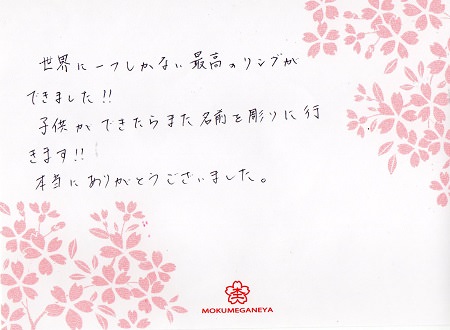 世界に一つしかない最高のリングが
できました!!
子供ができたらまた名前を彫りに行
きます!!
本当にありがとうございました。
MOKUMEGANEYA